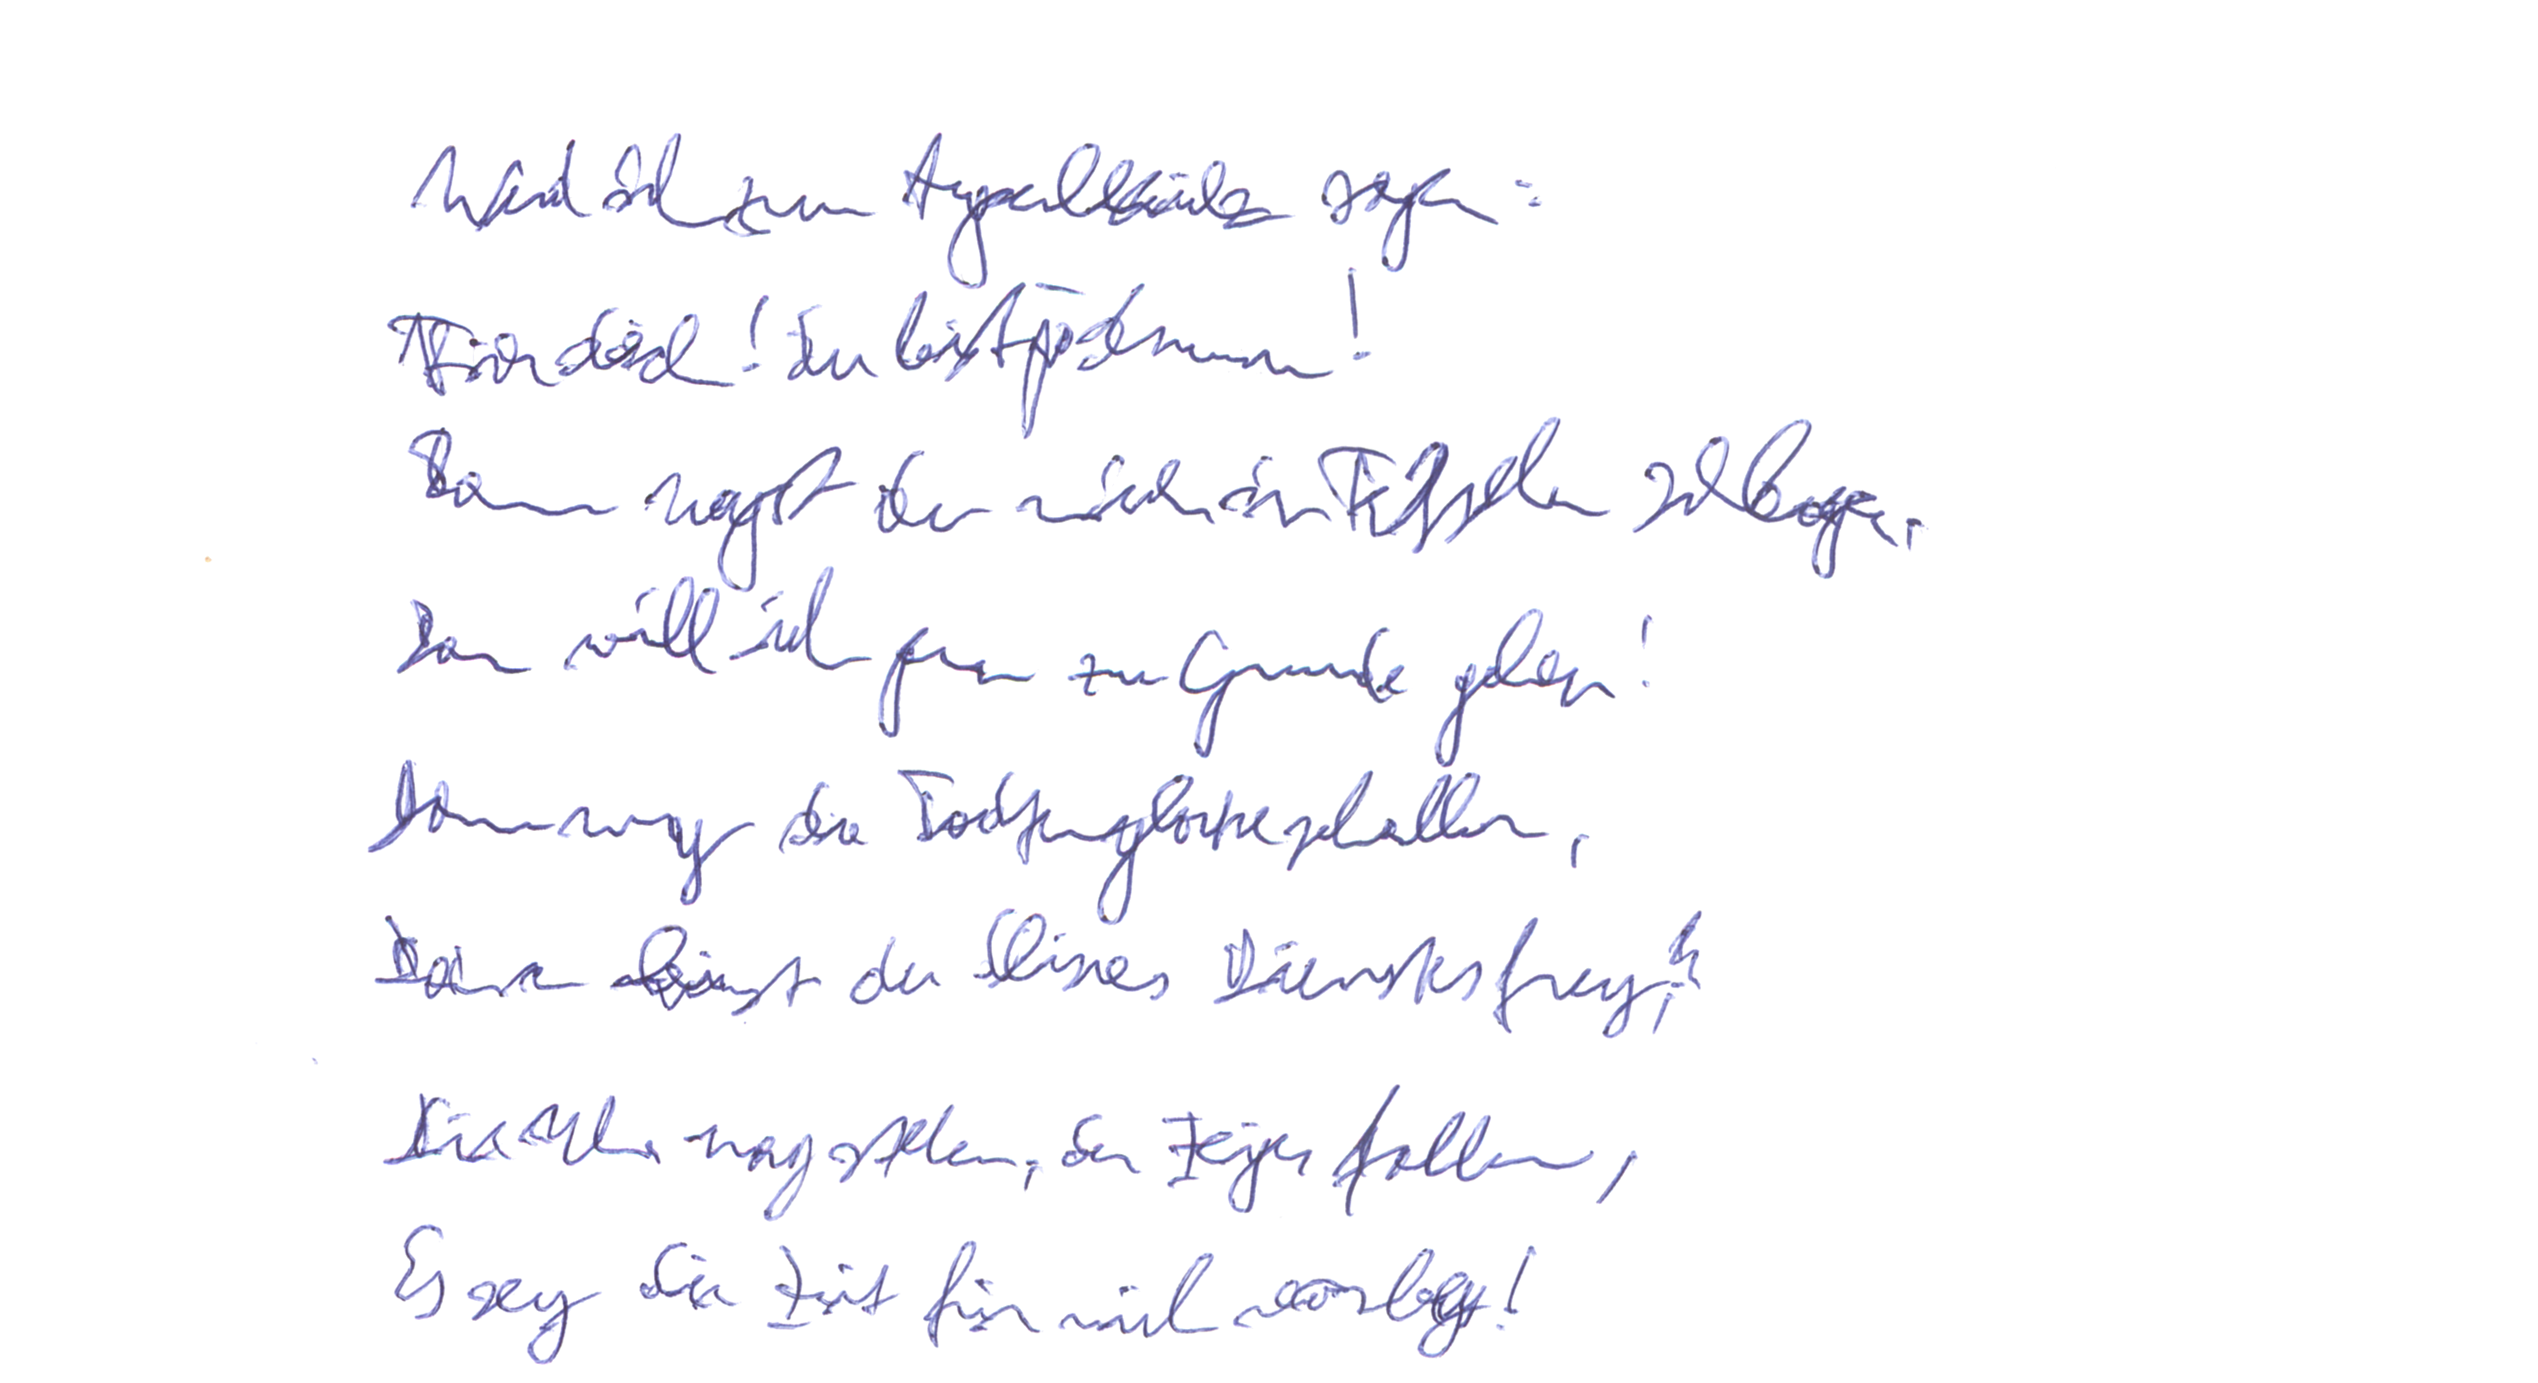 Werd ich zum Augenblicke sagen:
! du bist !
Dann magst du mich in Fesseln schlagen,
Dan will ich gern zu Grunde gehen!
Dann mag die Todtenglocke schallen,
Dann bist du Deines Dienstes frey,
Die Uhr mag stehen, der Zeiger fallen,
Es sey die Zeit für mich vorbey!